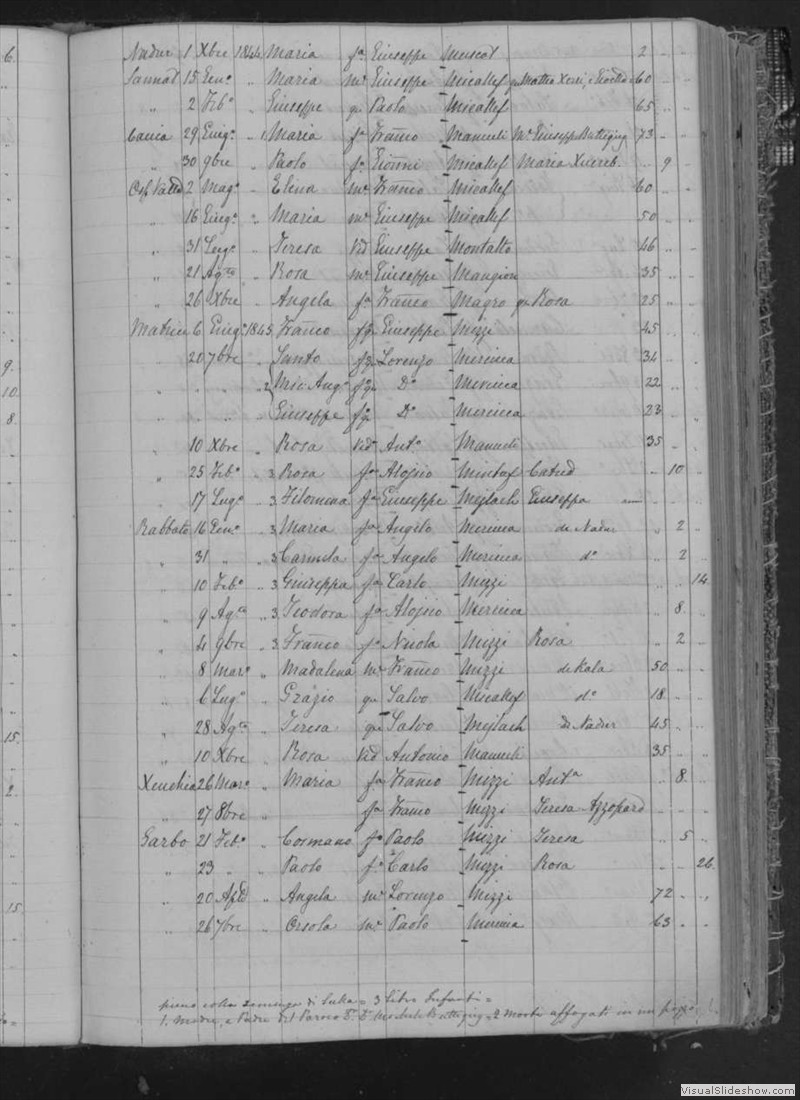 6.
Nadur 1 Xbre 1844 Maria fa Giuseppe Muscat 2 " "
Sannat 15 Gen.o " Maria m.e Giuseppe Micallef 60 " "
" 2 Feb.o " Giuseppe qm Paolo Micallef 65 " "
Caccia 29 Giug.o 1 Maria fa Franco Mamuli M.e Giuseppe Buttigieg 73 " "
" 30 9bre " Paolo fo Giovni Micallef Maria Xuereb " 9 "
2 Mag.o " Elena m.e Franco Micallef 60 " "
" 16 Giug.o " Maria m.e Giuseppe Micallef 50 " "
" 31 Lug.o " Teresa Vid Giuseppe Montalto 46 " "
" 21 Ag.to " Rosa m.e Giuseppe Mangion 35 " "
" 26 Xbre " Angela fa Franco Magro qm Rosa 25 " "
Matrice 6 Giug.o 1845 Franco fq Giuseppe Mizzi 45 " "
" 20 7bre Santo fq Lorenzo Mercieca 34 " "
9.
" " " 2 Mic. Ang.o fq D.o Mercieca 22 " "
10.
" " " Giuseppe fq D.o Mercieca 23 " "
8.
" 10 Xbre " Rosa Vid Ant.o Mamuli 35 " "
" 25 Feb.o 3 Rosa fa Aloisio Mintuf " 10 "
" 17 Lug.o 3 Filomena fa Giuseppe Mejlach Giuseppa — " "
Rabbato 16 Gen.o 3 Maria fa Angelo Mercieca de Nadur " 2 "
" 31 " 3 Carmela fa Angelo Mercieca d.o " 2 "
" 10 Feb.o 3 Giuseppa fa Carlo Mizzi " " 14
" 9 Ag.to 3 Teodora fa Aloisio Mercieca " 8 "
" 4 9bre 3 Franco fo Nicola Mizzi Rosa " 2 "
" 8 Mar.o " Madalena m.e Franco Mizzi de Kala 50 " "
" 6 Lug.o " Grazio qm Salvo Micallef d.o 18 " "
15.
" 28 Ag.to " Teresa qm Salvo Mejlach de Nadur 45 " "
" 10 Xbre " Rosa Vid Antonio Mamuli 35 " "
2.
Xeuchia 26 Mar.o " Maria fa Franco Mizzi Ant.a " 8 "
" 27 8bre " fa Franco Mizzi Teresa Azzopard " " "
Garbo 21 Feb.o " Cosmano fo Paolo Mizzi Teresa " 5 "
" 23 " " Paolo fo Carlo Mizzi Rosa " " 26
" 20 Aple " Angela m.e Lorenzo Mizzi 72 " "
15.
" 26 7bre " Orsola m.e Paolo Mercieca 63 " "
= 3 Libro Infanti =
1. Madre, e Padre del Paroco D. D. Michele Buttigieg = 2 Morti affogati in un pozzo
VisualSlideshow.com